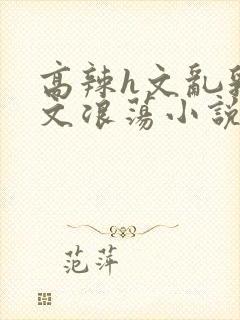 高辣h文亂
文浪蕩小說
范萍